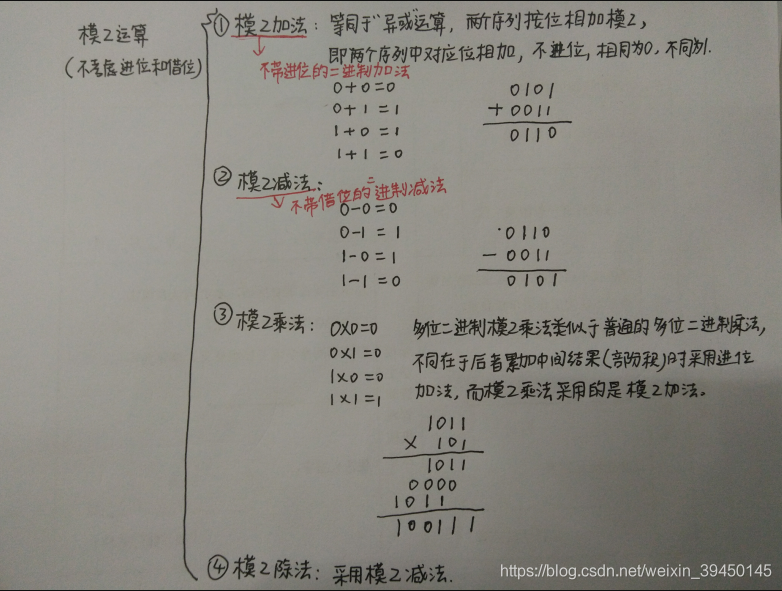 模2运算
(不考虑进位和借位)
① 模2加法: 等同于"异或"运算, 两个序列按位相加模2,
即两个序列中对应位相加, 不进位, 相同为0, 不同为1.
不带进位的二进制加法
0+0=0
0+1=1
1+0=1
1+1=0
0101
+ 0011
0110
② 模2减法:
不带借位的二进制减法
0-0=0
0-1=1
1-0=1
1-1=0
0110
- 0011
0101
③ 模2乘法:
0×0=0
0×1=0
1×0=0
1×1=1
多位二进制模2乘法类似于普通的多位二进制乘法,
不同在于后者累加中间结果(部份积)时采用进位
加法, 而模2乘法采用的是模2加法。
1011
× 101
1011
0000
1011
100111
④ 模2除法: 采用模2减法.
https://blog.csdn.net/weixin_39450145